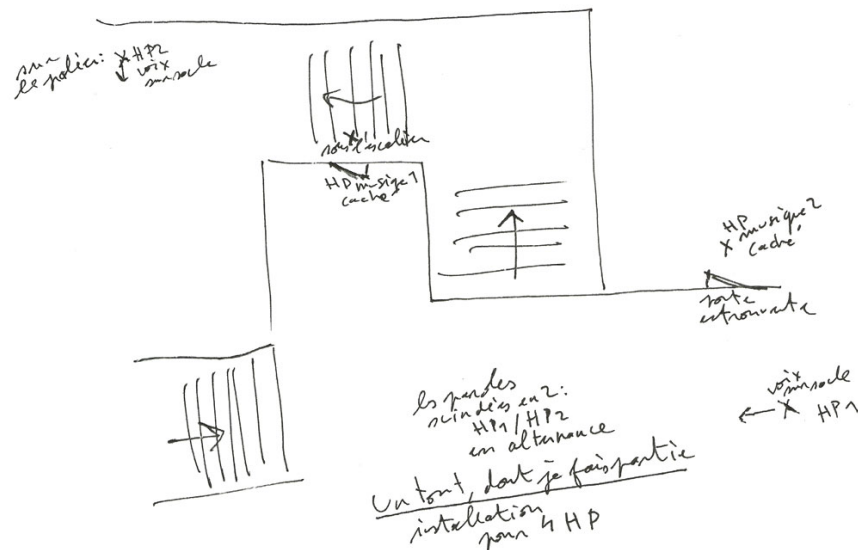 sur
le palier:
X HP2
voix
sur socle
sous l'escalier
HP musique 1
caché
HP
X musique 2
caché
porte
entrouverte
voix
sur socle
X HP1
les paroles
scindées en 2:
HP1/HP2
en alternance
Un tout, dont je fais partie
installation
pour 4 HP